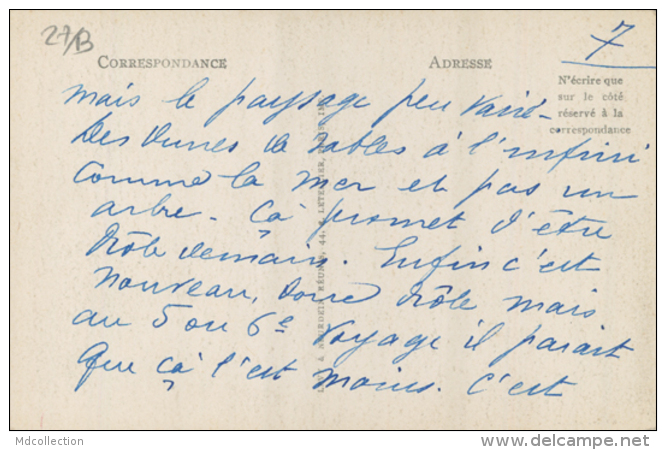 27/B
7
CORRESPONDANCE
ADRESSE
N'écrire que
sur le côté
réservé à la
correspondance
mais le paysage peu varié -
Des dunes de sables à l'infini
comme la mer et pas un
arbre - Çà promet d'être
drôle demain. Enfin c'est
nouveau, donc drôle mais
au 5 ou 6e voyage il parait
que çà l'est moins. C'est
Mdcollection
delcampe.net